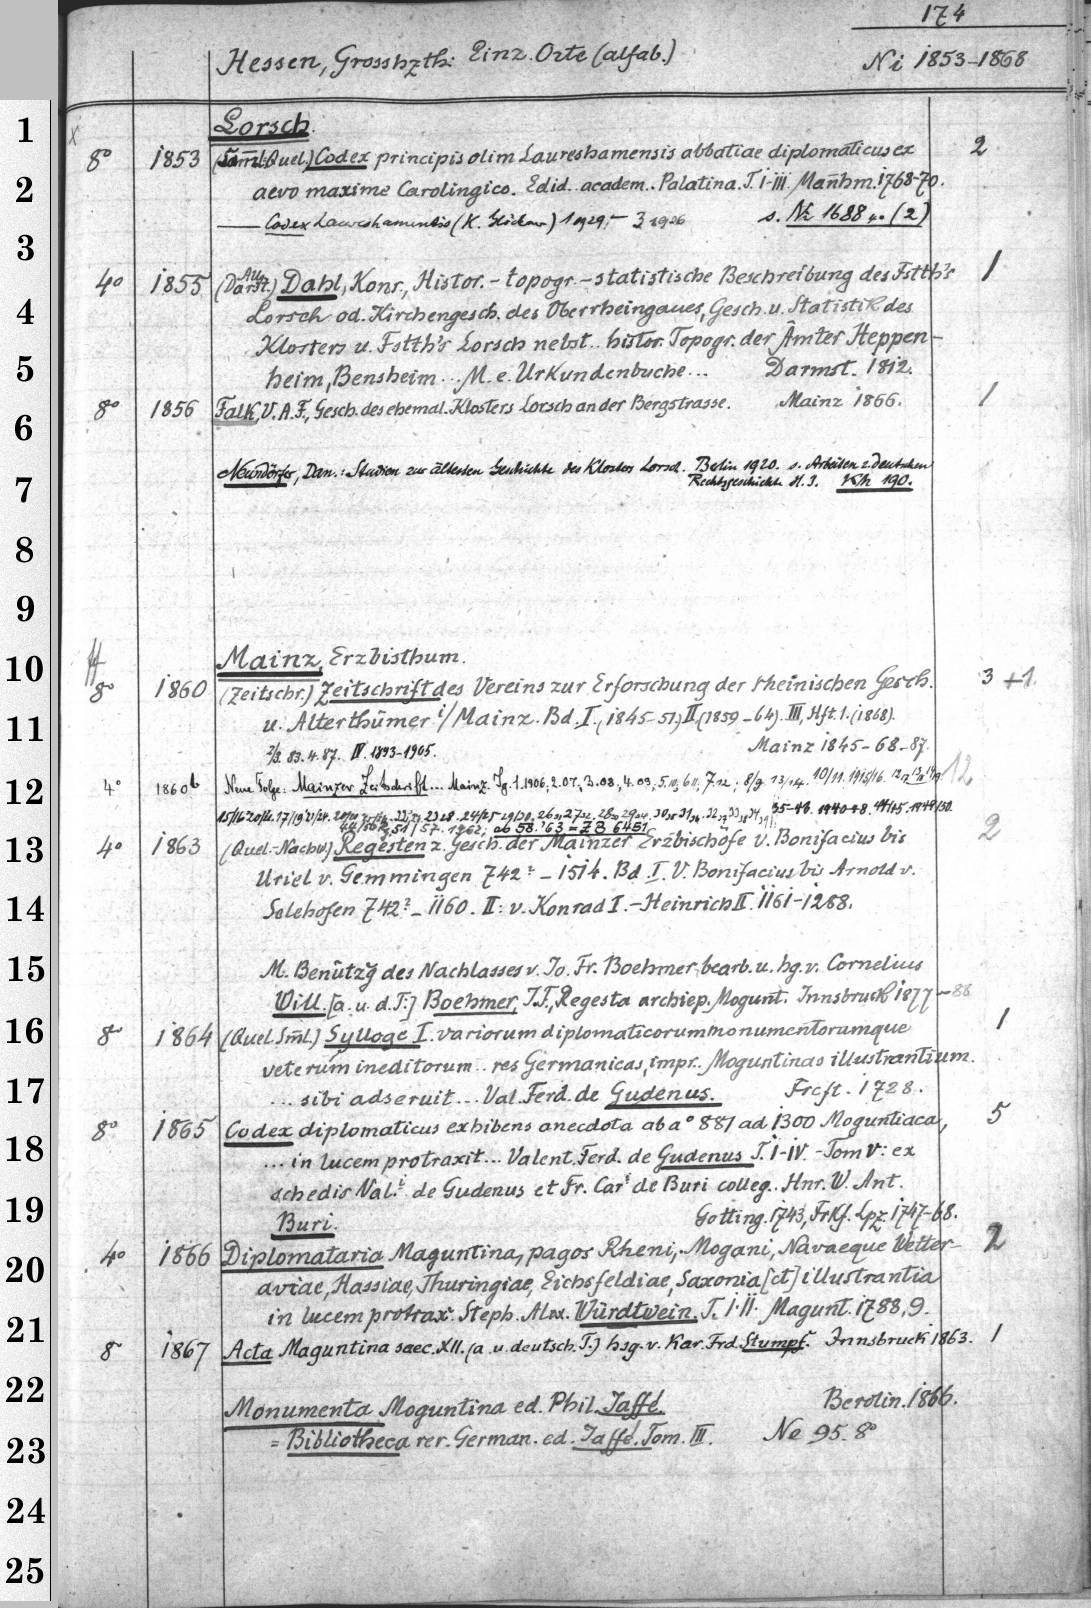 174
Hessen, Grosshzth: Einz. Orte (alfab.)
Ni 1853-1868
Lorsch.
8° 1853 (Saml: Quel.) Codex principis olim Laureshamensis abbatiae diplomaticus ex 2
aevo maxime Carolingico. Edid. academ.. Palatina. T. I-III. Mañhm. 1768-70.
Codex Laureshamensis (K. Glöckner) 1 1929,- 3 1936 s. Ni 1688 4° (2)
4° 1855 (Au Darst.) Dahl, Konr., Histor.-topogr.-statistische Beschreibung des Fstth's 1
Lorsch od. Kirchengesch. des Oberrheingaues, Gesch. u. Statistik des
Klosters u. Fstth's Lorsch nebst.. histor. Topogr. der Ämter Heppen-
heim, Bensheim... M. e. Urkundenbuche... Darmst. 1812.
8° 1856 Falk, V. A. F., Gesch. des ehemal. Klosters Lorsch an der Bergstrasse. Mainz 1866. 1
Neundörfer, Dan.: Studien zur ältesten Geschichte des Klosters Lorsch. Berlin 1920. s. Arbeiten z. deutschen
Rechtsgeschichte H. 3. Kh 190.
Mainz, Erzbisthum.
8° 1860 (Zeitschr.) Zeitschrift des Vereins zur Erforschung der rheinischen Gesch. 3 +1
u. Alterthümer i/Mainz. Bd. I. (1845-51) II (1859-64). III, Hft. 1. (1868).
2/3. 83. 4. 87. IV. 1893-1905. Mainz 1845-68-87.
4° 1860b Neue Folge: Mainzer Zeitschrift... Mainz. Jg. 1. 1906, 2. 07, 3. 08, 4. 09, 12
ab 58. '63 = Z 8 6451
4° 1863 (Quel.-Nachw.) Regesten z. Gesch. der Mainzer Erzbischöfe v. Bonifacius bis 2
Uriel v. Gemmingen 742?-1514. Bd. I. V. Bonifacius bis Arnold v.
Selehofen 742?-1160. II: v. Konrad I.-Heinrich II. 1161-1288.
M. Benützg des Nachlasses v. Jo. Fr. Boehmer bearb. u. hg. v. Cornelius
Will. [a. u. d. T:] Boehmer, J. F., Regesta archiep. Mogunt. Innsbruck 1877-88
8° 1864 (Quel. Sml.) Sylloge I. variorum diplomaticorum monumentorumque 1
veterum ineditorum.. res Germanicas, impr.. Moguntinas illustrantium.
... sibi adseruit... Val. Ferd. de Gudenus. Frcft. 1728.
8° 1865 Codex diplomaticus exhibens anecdota ab a° 881 ad 1300 Moguntiaca, 5
... in lucem protraxit... Valent. Ferd. de Gudenus T. I-IV. - Tom V: ex
schedis Val.i de Gudenus et Fr. Cari de Buri colleg.. Hnr. W. Ant.
Buri. Gotting. 1743, Frkf. Lpz 1747-68.
4° 1866 Diplomataria Maguntina, pagos Rheni, Mogani, Navaeque Vetter- 2
aviae, Hassiae, Thuringiae, Eichsfeldiae, Saxonia [ct] illustrantia
in lucem protrax. Steph. Alex. Würdtwein. T. I. II. Magunt. 1788, 9.
8 1867 Acta Maguntina saec. XII. (a. u. deutsch. T.) hsg. v. Kar. Frd. Stumpf. Innsbruck 1863. 1
Monumenta Moguntina ed. Phil. Jaffé. Berolin. 1866.
= Bibliotheca rer. German. ed. Jaffé. Tom. III. Ne 95. 8°
1
2
3
4
5
6
7
8
9
10
11
12
13
14
15
16
17
18
19
20
21
22
23
24
25